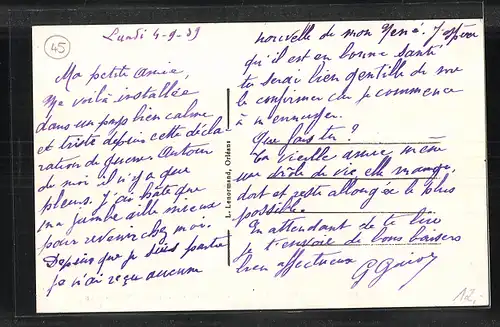 45
Lundi 4-9-39
Ma petite amie,
Me voilà installée
dans un pays bien calme
et triste depuis cette décla
ration de guerre. Autour
de moi il n'y a que
pleurs. J'ai hâte que
ma jambe aille mieux
pour revenir chez moi.
Depuis que je suis partie
je n'ai reçu aucune
L. Lenormand, Orléans
nouvelle de mon René. J'espère
qu'il est en bonne santé
tu serais bien gentille de me
le confirmer car je commence
à m'ennuyer.
Que fais-tu ?
Ta vieille amie mène
une drôle de vie, elle mange,
dort et reste allongée le plus
possible.
En attendant de te lire
je t'envoie de bons baisers
bien affectueux
12,-